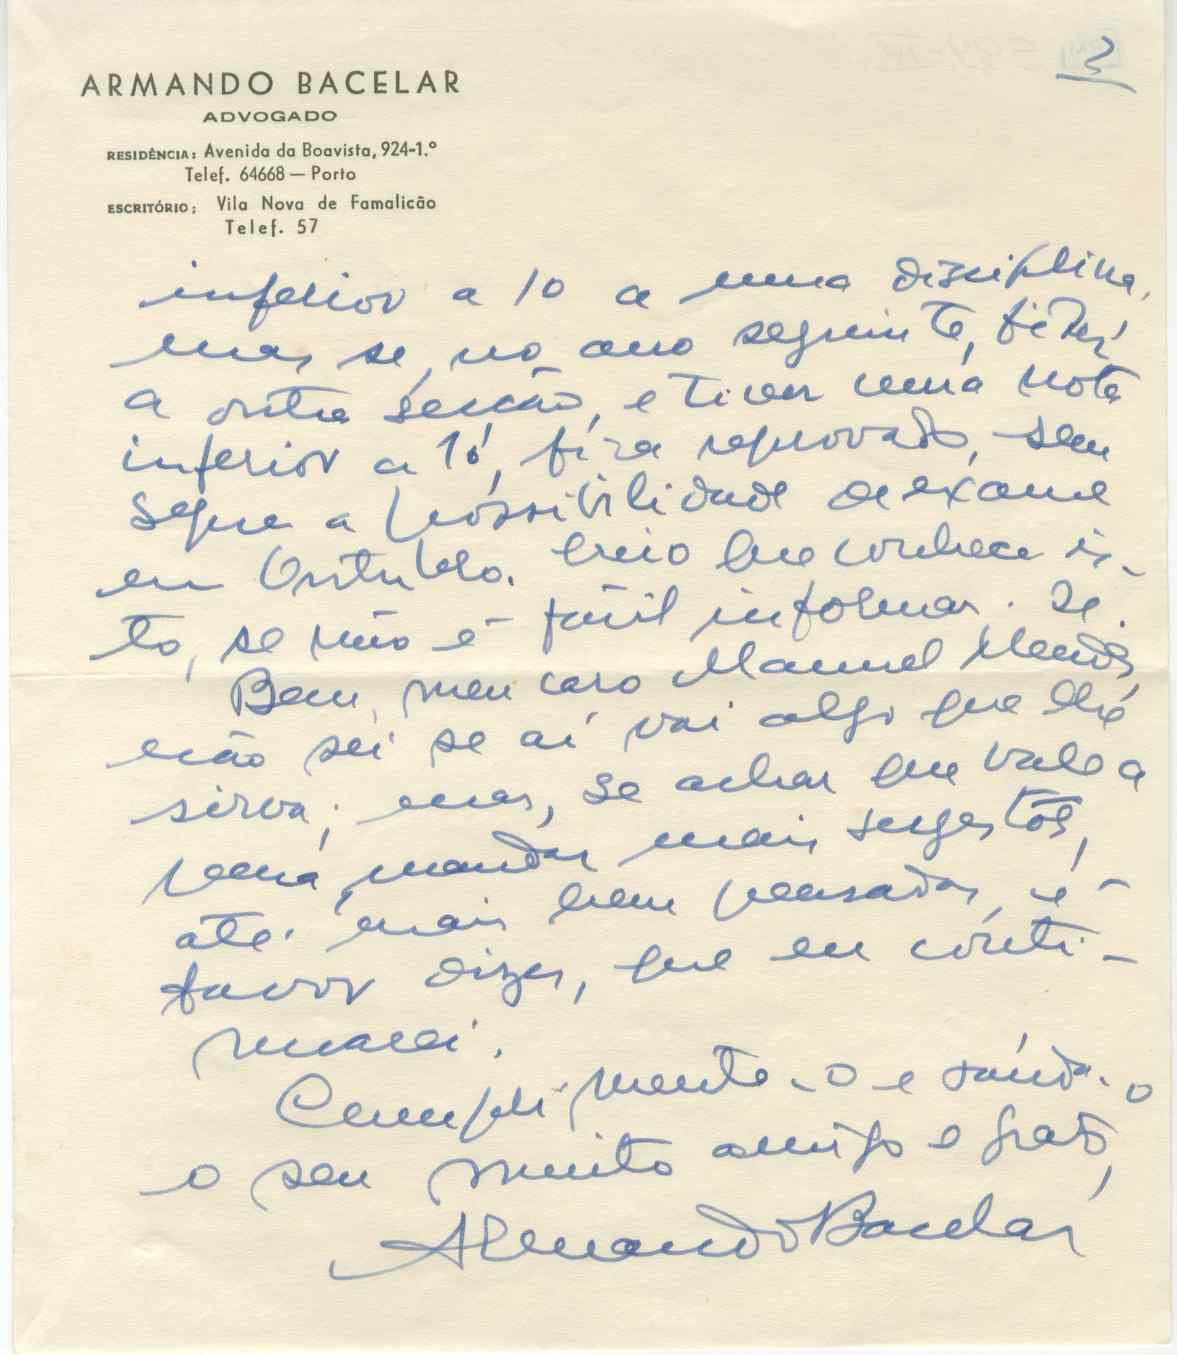 2
ARMANDO BACELAR
ADVOGADO
RESIDÊNCIA: Avenida da Boavista, 924-1.º
Telef. 64668 — Porto
ESCRITÓRIO; Vila Nova de Famalicão
Telef. 57
inferior a 10 a uma disciplina,
mas se, no ano seguinte, fizer
a outra secção, e tiver uma nota
inferior a 10, fica reprovado, sem
sequer a possibilidade de exame
em Outubro. Creio que conhece is-
to, se não é fácil informar-se.
Bem, meu caro Manuel Mendes,
não sei se aí vai algo que lhe
sirva; mas, se achar que vale a
pena mandar mais sugestões,
até mais bem pensadas, é
favor dizer, que eu conti-
nuarei.
Cumprimenta-o e saúda-o
o seu muito amigo e grato,
Armando Bacelar